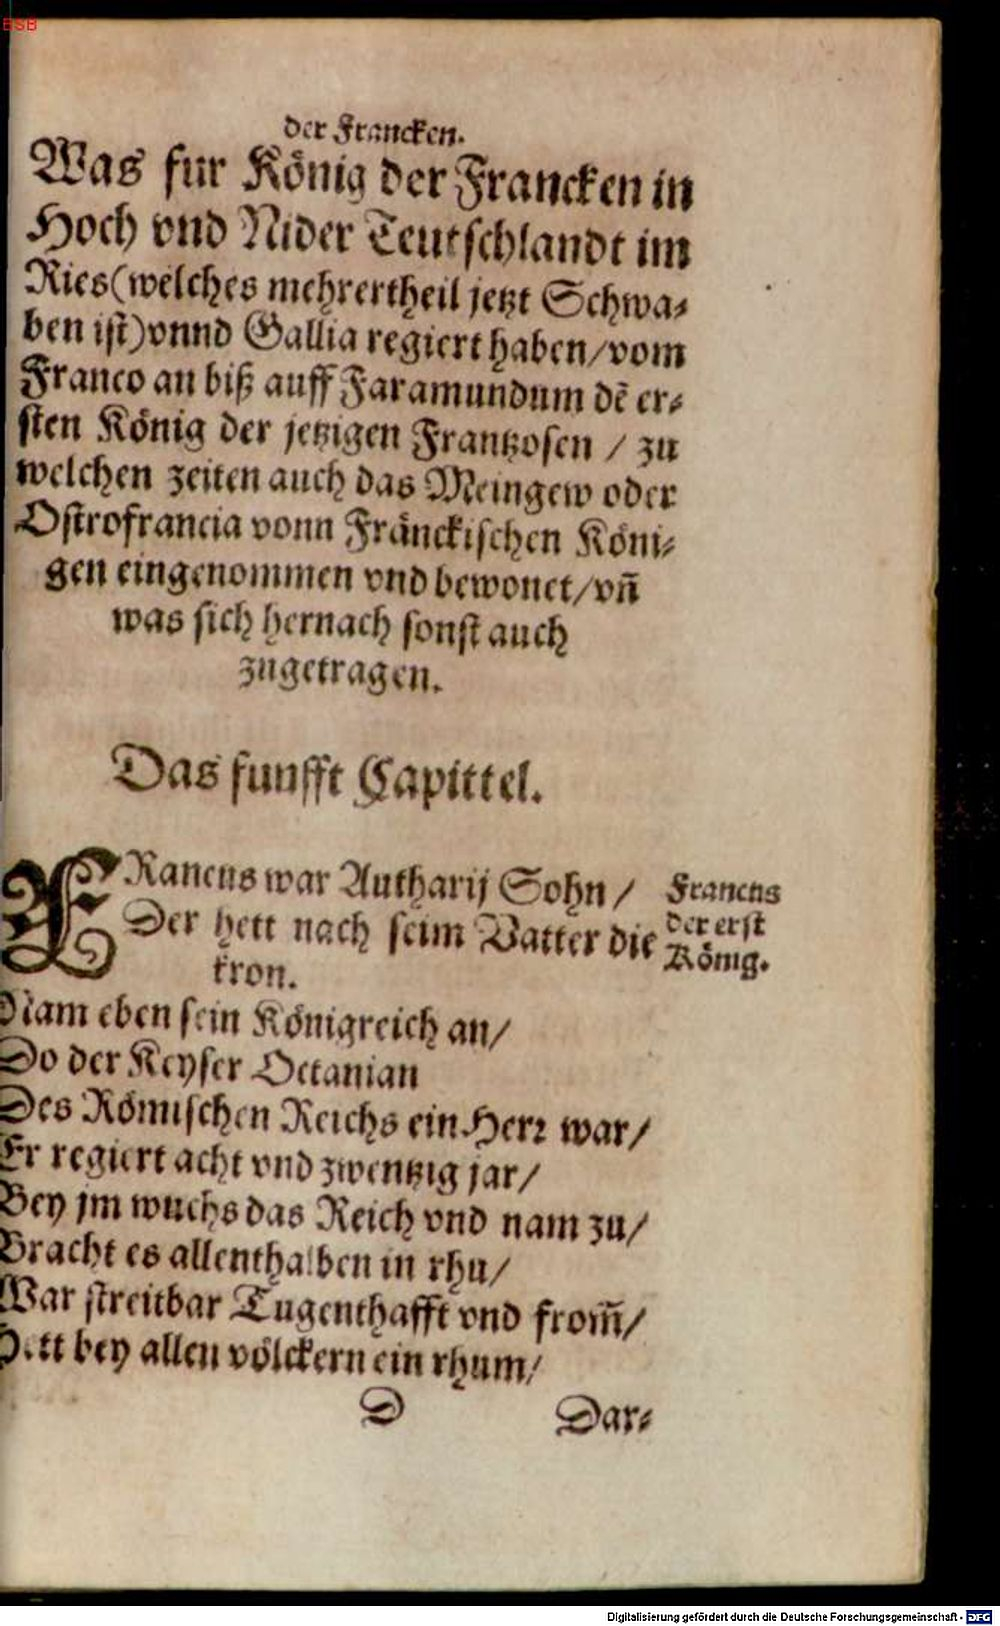 BSB
der Francken.
Was fur König der Francken in
Hoch vnd Nider Teutschlandt im
Ries (welches mehrertheil jetzt Schwa-
ben ist) vnnd Gallia regiert haben / vom
Franco an biß auff Faramundum dē er-
sten König der jetzigen Frantzosen / zu
welchen zeiten auch das Meingew oder
Ostrofrancia vonn Fränckischen Köni-
gen eingenommen vnd bewonet / vn̄
was sich hernach sonst auch
zugetragen.
Das funfft Capittel.
FRancus war Autharij Sohn /
Der hett nach seim Vatter die
kron.
Francus
der erst
König.
Nam eben sein Königreich an /
Do der Keyser Octanian
Des Römischen Reichs ein Herr war /
Er regiert acht vnd zwentzig jar /
Bey jm wuchs das Reich vnd nam zu /
Bracht es allenthalben in rhu /
War streitbar Tugenthafft vnd from̄ /
Hett bey allen völckern ein rhum /
D
Dar-
Digitalisierung gefördert durch die Deutsche Forschungsgemeinschaft - DFG